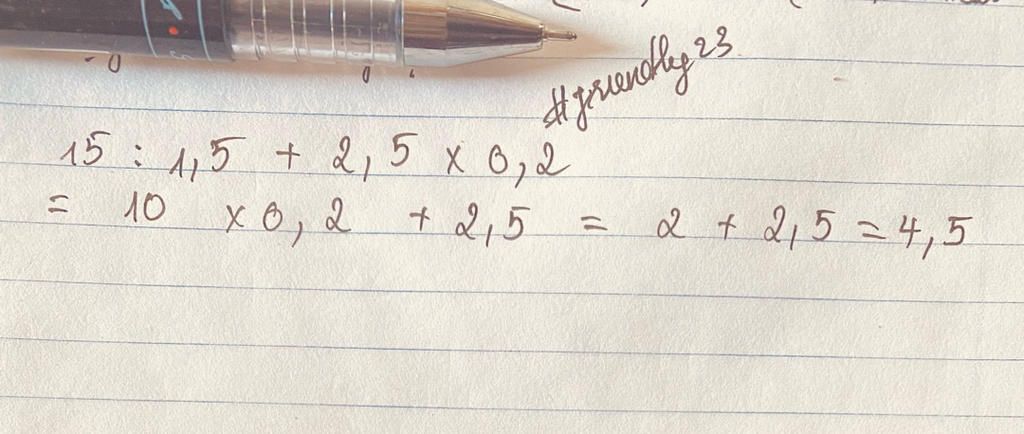 #friendly23
15 : 1,5 + 2,5 x 0,2
= 10 x 0,2 + 2,5 = 2 + 2,5 = 4,5